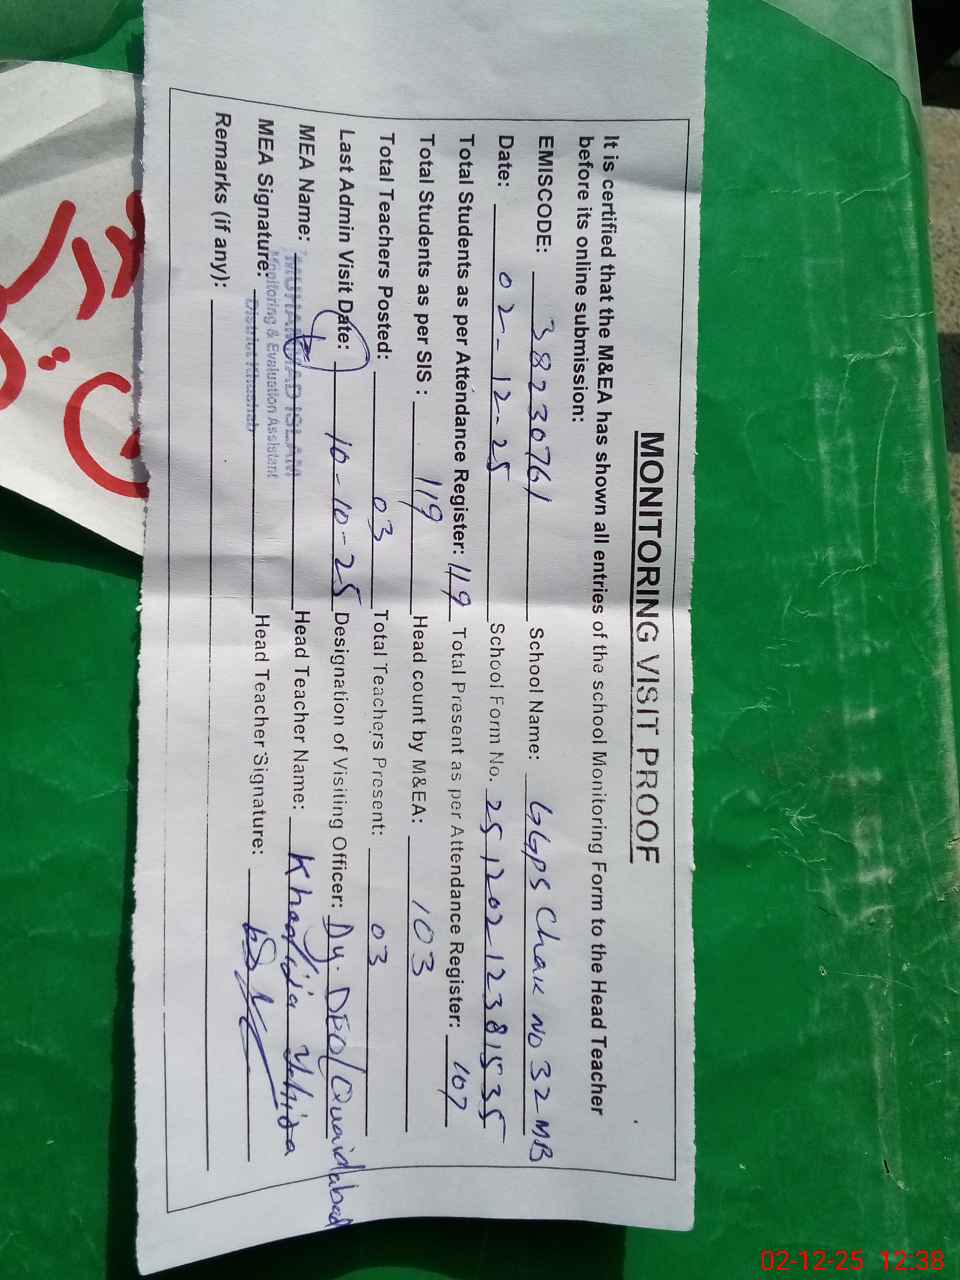 MONITORING VISIT PROOF
It is certified that the M&EA has shown all entries of the school Monitoring Form to the Head Teacher
before its online submission:
EMISCODE: 38230761 School Name: GGPS Chak No 32 MB
Date: 02-12-25 School Form No. 25120212381535
Total Students as per Attendance Register: 119 Total Present as per Attendance Register: 107
Total Students as per SIS : 119 Head count by M&EA: 103
Total Teachers Posted: 03 Total Teachers Present: 03
Last Admin Visit Date: 10-10-25 Designation of Visiting Officer: Dy. DEO/Quaidabad
MEA Name: MUHAMMAD ISLAM Head Teacher Name: Khadija
Monitoring & Evaluation Assistant
District Khushab
MEA Signature: Head Teacher Signature:
Remarks (if any):
02-12-25 12:38